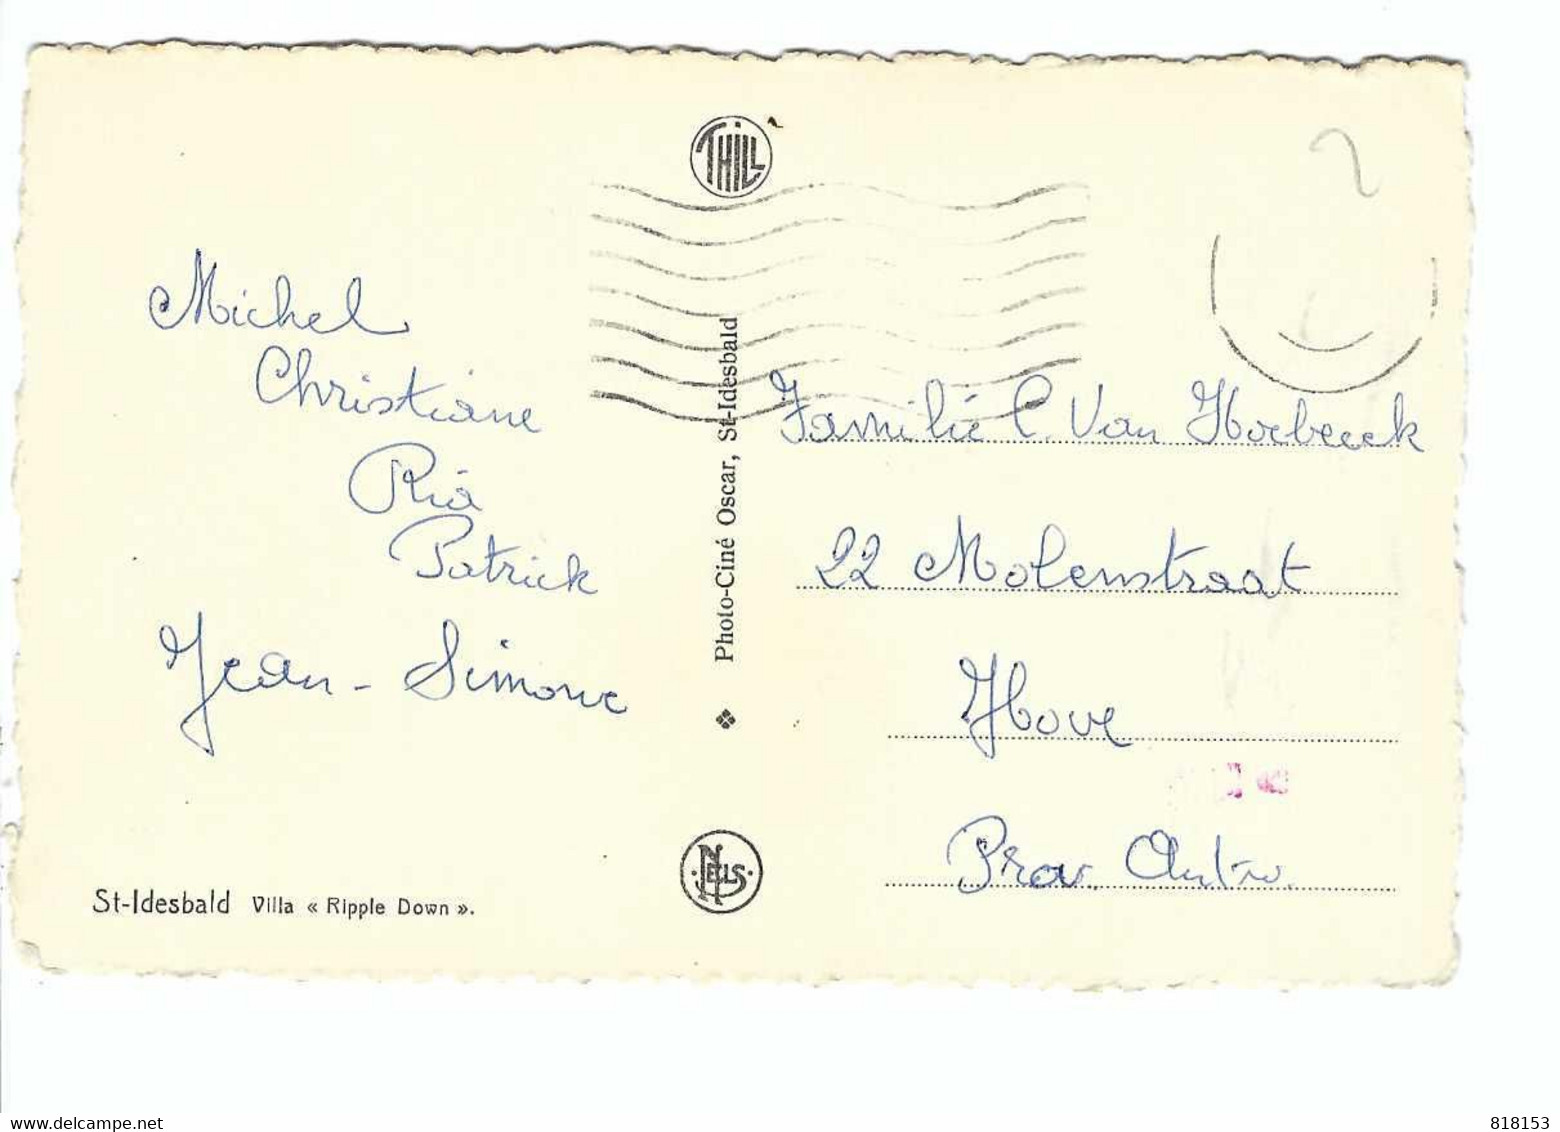 THILL
Michel
Christiane
Ria
Patrick
Jean - Simone
St-Idesbald Villa « Ripple Down ».
Photo-Ciné Oscar, St-Idesbald
NELS
Familie C. Van Hoebeeck
22 Molenstraat
Hove
Prov. Antw.
818153